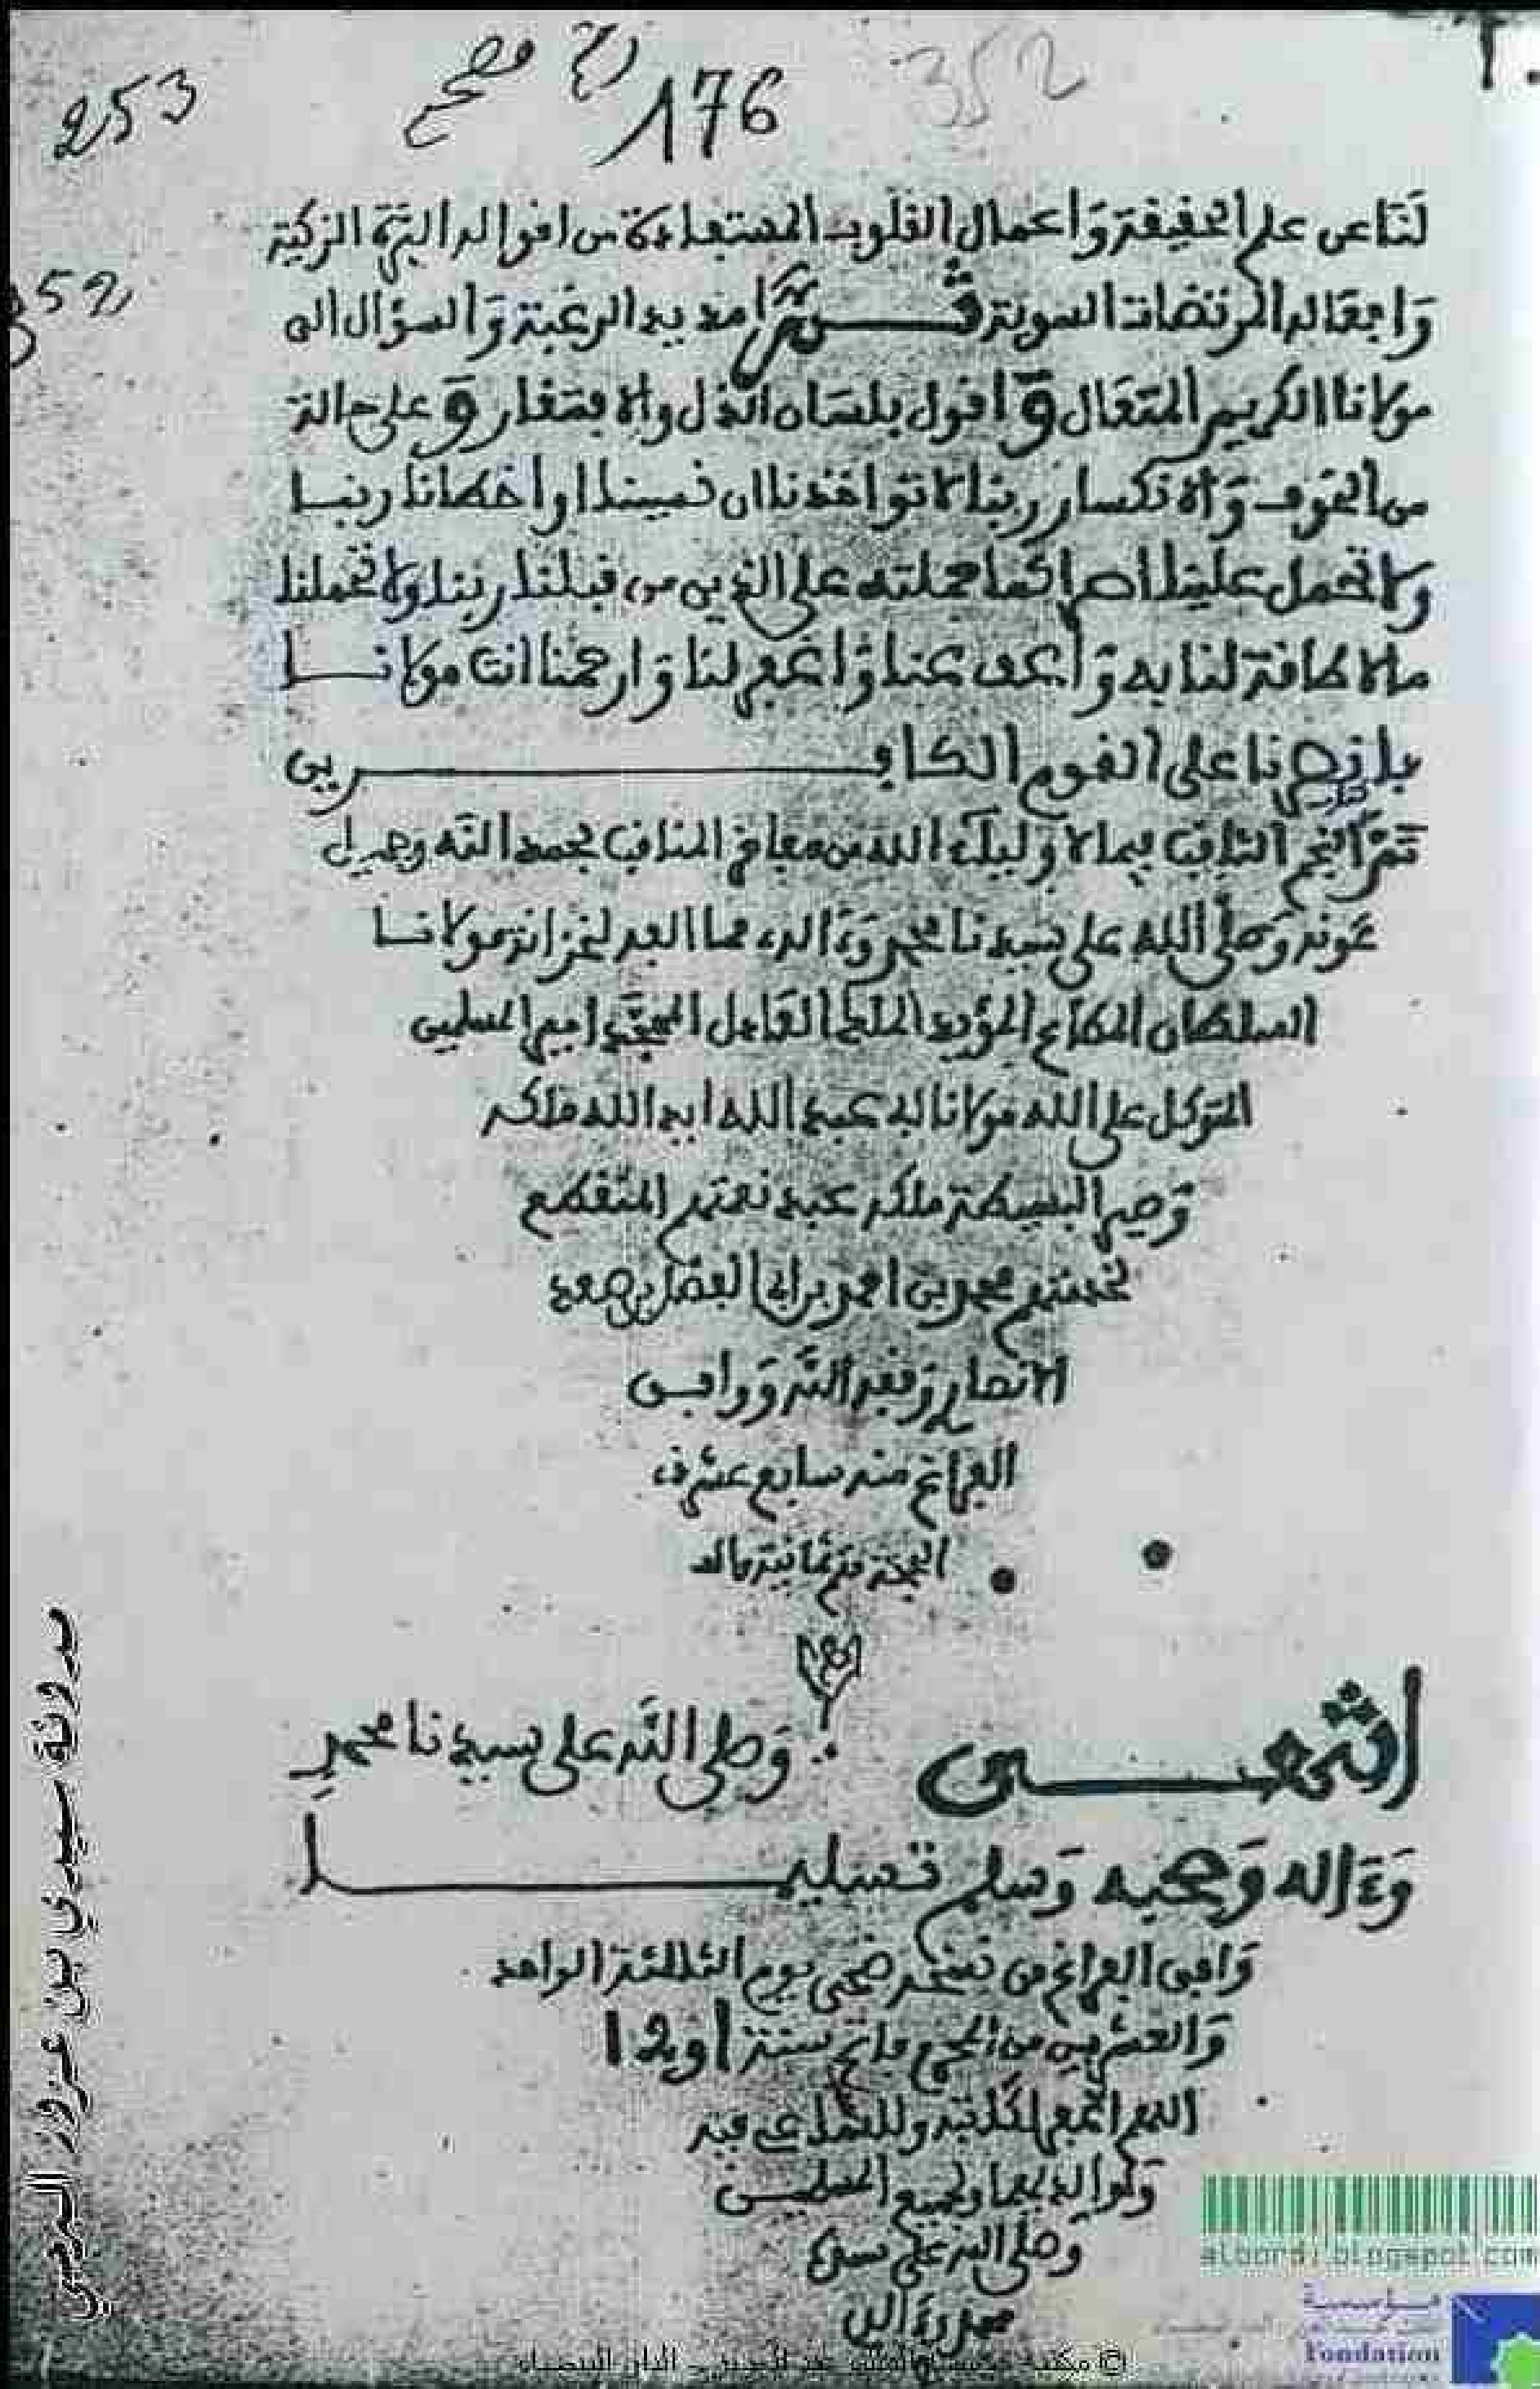 253
صح
176
352
352
لنا على الحقيقة وأعمال القلوب المستفادة من اقواله البرة الزكية
وافعاله المرتضات السوية ثم امد يد الرغبة والسؤال الى
مولانا الكريم المتعال واقول بلسان الذل والافتقار وعلى حالة
من الخوف والانكسار ربنا لا تواخذنا ان نسينا او اخطانا ربنا
ولا تحمل علينا اصرا كما حملته على الذين من قبلنا ربنا ولا تحملنا
ما لا طاقة لنا به واعف عنا واغفر لنا وارحمنا انت مولانا
فانصرنا على القوم الكافرين
تم النجم الثاقب فيما لاولياء الله من مفاخر المناقب بحمد الله وجميل
عونه وصلى الله على سيدنا محمد وءاله مما الف لخزانة مولانا
السلطان المطاع المؤيد الملك العادل امير المسلمين
المتوكل على الله مولانا ابي عبد الله ايد الله ملكه
وصير البسيطة ملكه عبد نعمتهم المنقطع
لخدمتهم محمد بن احمد بن ابي الفضل بن صعد
الانصاري وفقه الله ووافى
الفراغ منه سابع عشر ذي
الحجة
انتهى وصلى الله على سيدنا محمد
وءاله وصحبه وسلم تسليما
وافى الفراغ من نسخه ضحى يوم الثلاثة الواحد
والعشرين من المحرم فاتح سنة
اللهم اغفر لكاتبه وللناظر فيه
ولوالديهما ولجميع المسلمين
وصلى الله على سيدنا
محمد وءاله
مدونة سيدي بن عزوز البرجي
albordj.blogspot.com
مؤسسة
Fondation
© مكتبة مؤسسة الملك عبد العزيز - الدار البيضاء